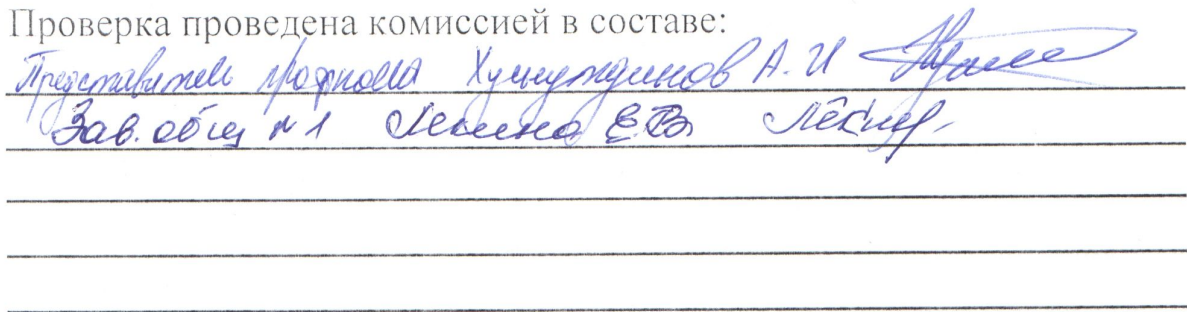 Проверка проведена комиссией в составе:
Представитель профкома Хуснутдинов А. И
Зав. общ №1 Лекина Е.В.